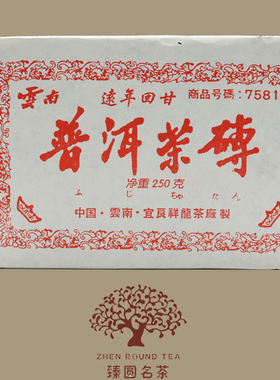 雲南 遠年回甘 商品号碼:7581
普洱茶磚
净重250克
ふじちゅたん
中国·雲南·宜良祥龍茶廠製
臻圆名茶
ZHEN ROUND TEA
臻圆名茶